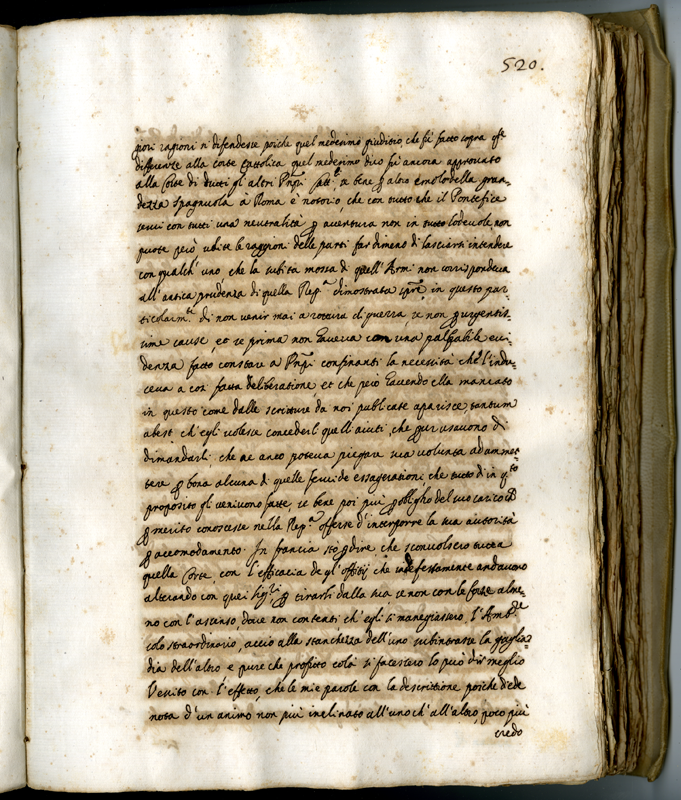 520.
piori ragioni si difendesse poiche quel medesimo giuditio, che fù fatto sopra qste
differenze alla corte Cattolica quel medesimo dico fù ancora approuato
alla Corte di tutti gl'altri Pnpi fatt.e se bene p altro emolo della gran-
dezza Spagnuola à Roma è notorio, che con tutto che il Pontefice
usasi con tutti una neutralità p auentura non in tutto lodeuole, non
puote però udite le raggioni delle parti far dimeno di lasciarsi intendere
con qualch'uno che la subita mossa di quell'Armi non corrispondeua
all'antica prudenza di quella Rep.a dimostrata spre in questo par-
ticolarm.te di non venir mai a rottura di guerra, se non p urgentis-
sime cause, et se prima non haueua con una palpabile eui
denza fatto constare a Pnpi confinanti la necessità che l'indu-
ceua a cosi fatta deliberatione, et che però hauendo ella mancato
in questo come dalle scritture da noi publicate aparisce tantum
abest ch'egli volesse concederli quelli aiuti, che pur usauono di
dimandarli che ne anco poteua piegare sua voluntà ad amet
tere p bona alcuna di quelle feruide essagerationi che tutto dì in qto
proposito gli veniuono fatte, se bene poi più p obbligho del suo carico
p merito conoscesse nella Rep.a offerse d'interporre la sua autorità
p accomodamento. In francia sto p dire che sconuolsero tutta
quella Corte, con l'efficacia degl'offitij che indefessamente andauono
alterando con quei sig.ri p tirarli dalla sua se non con le forze alme-
no con l'assenso doue non contenti ch'egli si manegiassero, l'Amb.re
colo straordinario, acciò alla stanchezza dell'uno subintrasse la gagliar
dia dell'altro e pure che profitto colà si facessero lo può dir meglio
l'esito con l'effetto, che le mie parole con la descrittione poiche diede
nota d'un animo non più inclinato all'uno ch'all'altro, poco più
credo